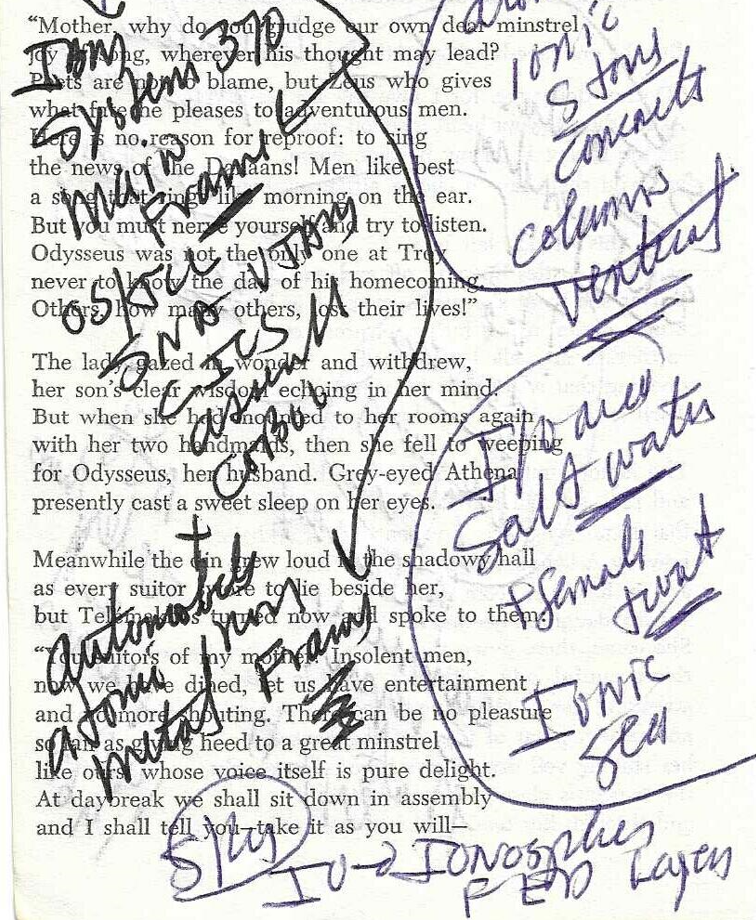 “Mother, why do you grudge our own dear minstrel
joy of song, wherever his thought may lead?
Poets are not to blame, but Zeus who gives
what fate he pleases to adventurous men.
Here is no reason for reproof: to sing
the news of the Danaans! Men like best
a song that rings like morning on the ear.
But you must nerve yourself and try to listen.
Odysseus was not the only one at Troy
never to know the day of his homecoming.
Others, how many others, lost their lives!”
The lady gazed in wonder and withdrew,
her son's clear wisdom echoing in her mind.
But when she had mounted to her rooms again
with her two handmaids, then she fell to weeping
for Odysseus, her husband. Grey-eyed Athena
presently cast a sweet sleep on her eyes.
Meanwhile the din grew loud in the shadowy hall
as every suitor swore to lie beside her,
but Telémakhos turned now and spoke to them:
“You suitors of my mother! Insolent men,
now we have dined, let us have entertainment
and no more shouting. There can be no pleasure
so fair as giving heed to a great minstrel
like ours, whose voice itself is pure delight.
At daybreak we shall sit down in assembly
and I shall tell you—take it as you will—
System 370
Main
Frame
OS/JCL
SNA VTAM
CICS
COBOL
Automobile
atomic
metal
Frame
Ionic
Stone
Concrete
columns
vertical
Salt water
female
Ionic
sea
Sky
Ionosphere
F E D Layers